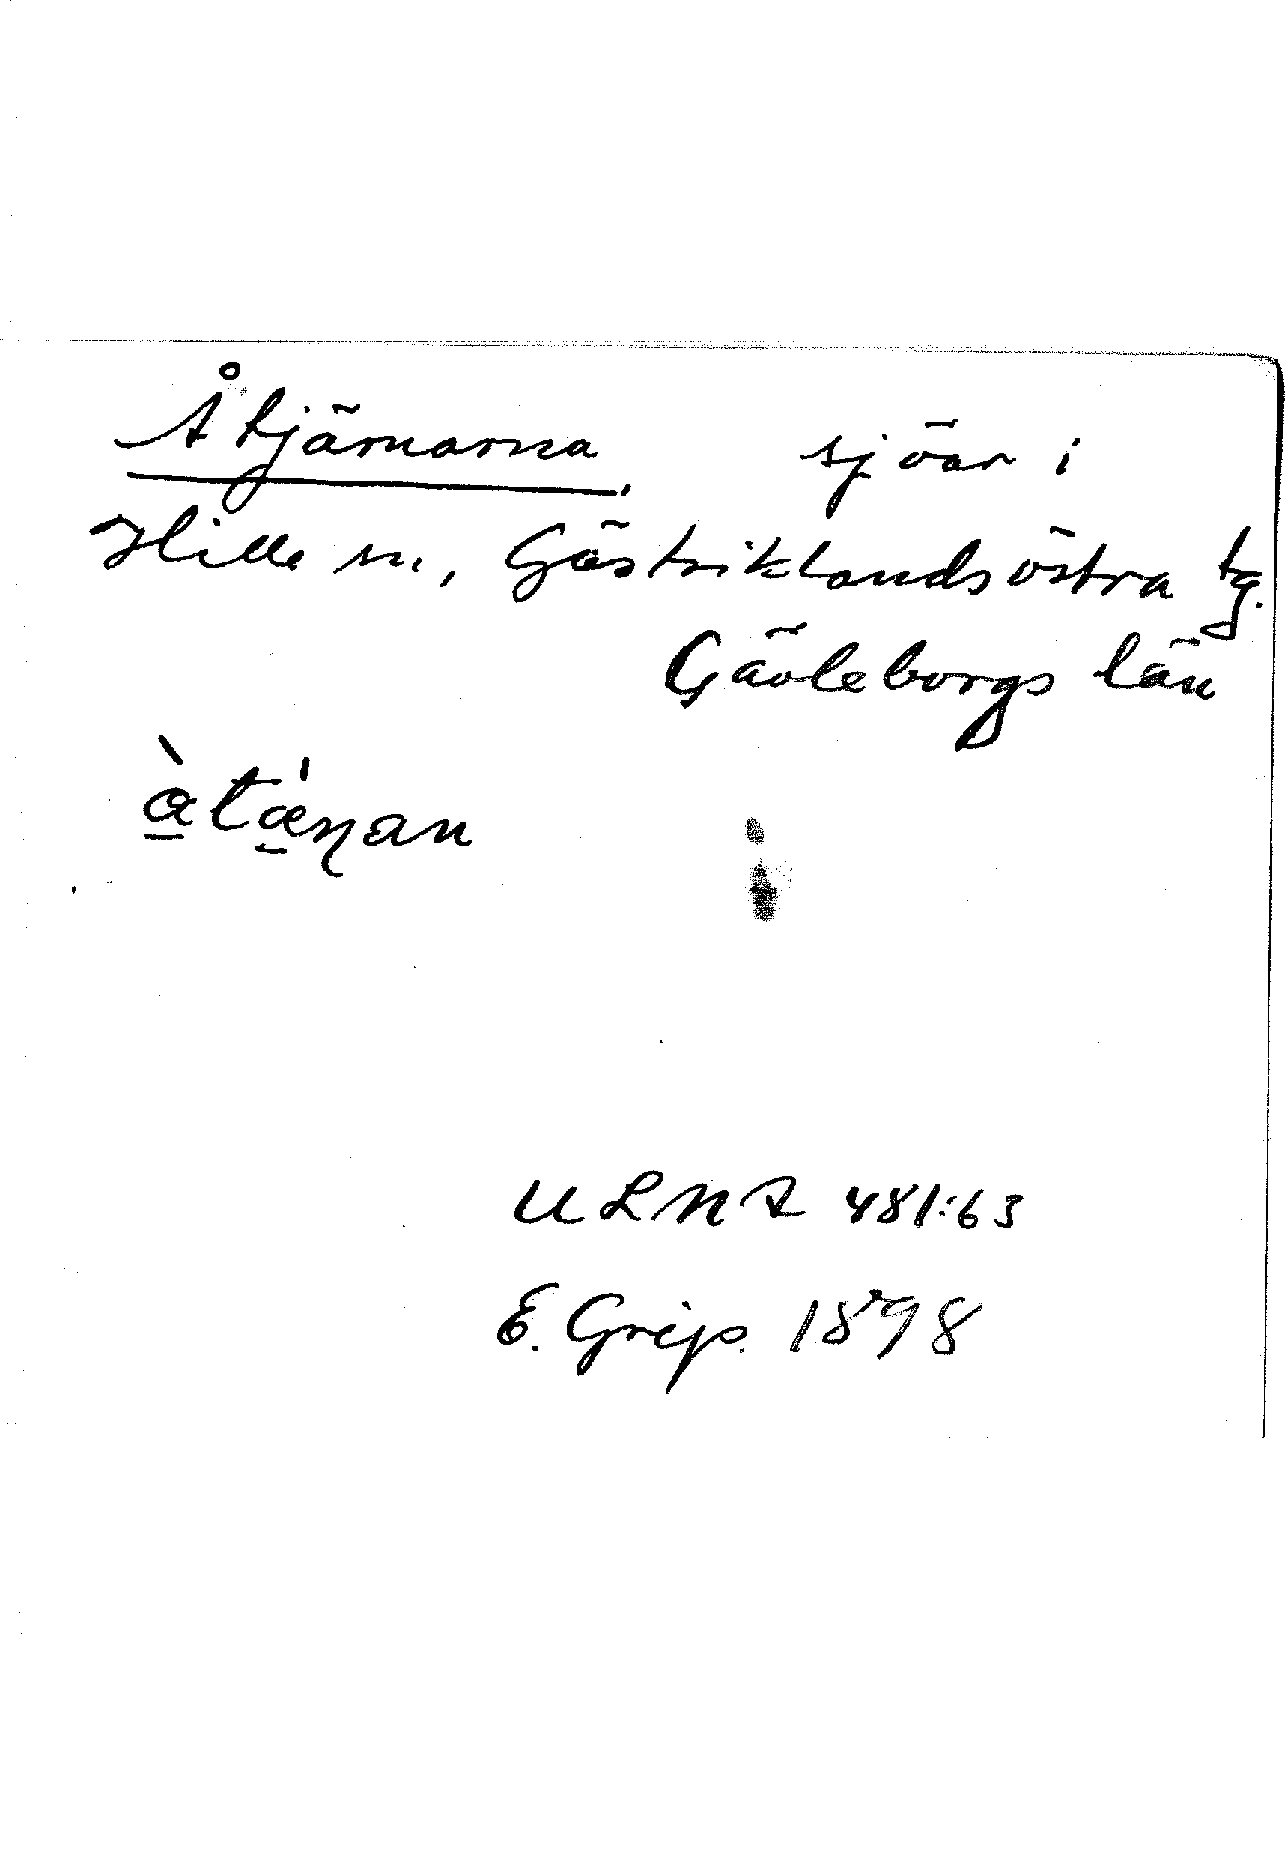 Åtjärnarna, sjöar i
Hille sn, Gästriklands östra tg.
Gävleborgs län
ULMA 481:63
E. Grip. 1898